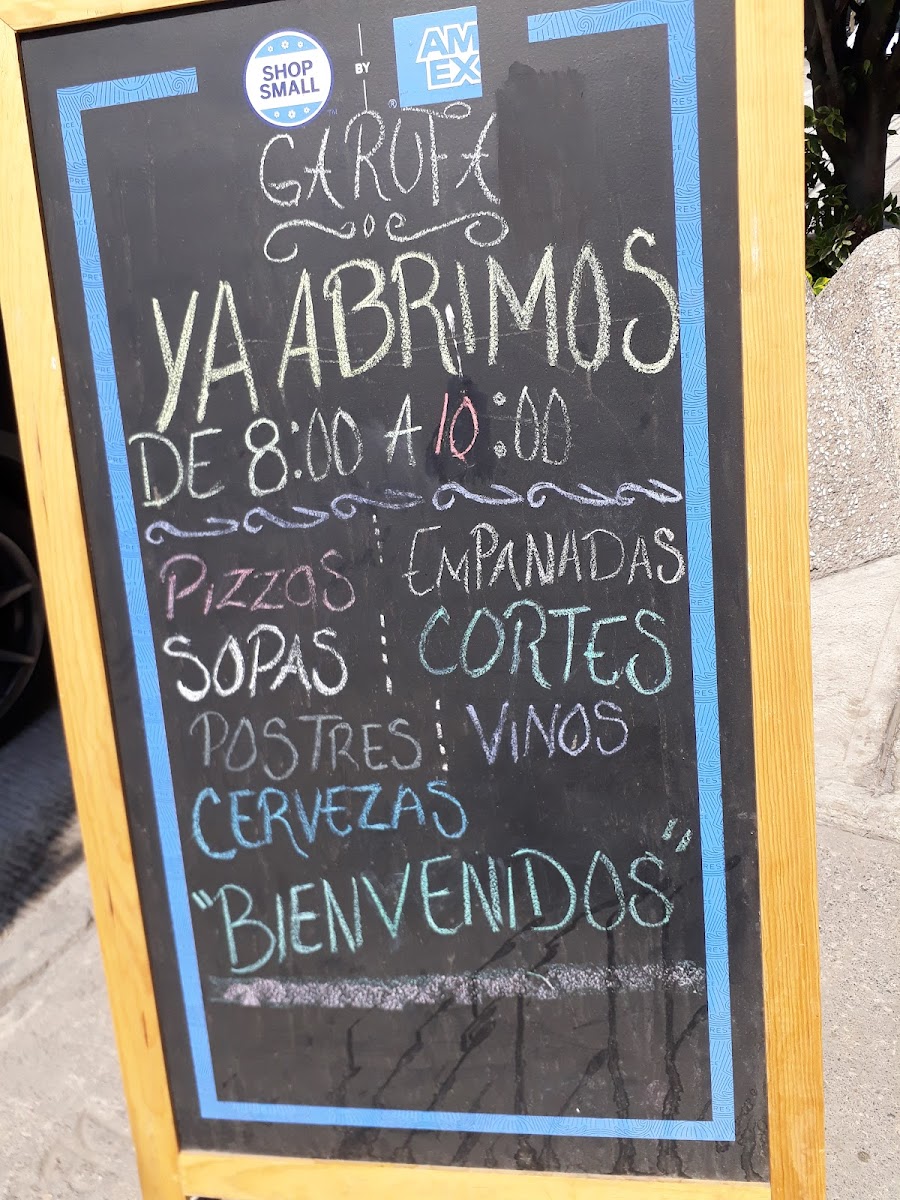 SHOP
SMALL
BY
AM
EX
GARUFA
YA ABRIMOS
DE 8:00 A 10:00
PIZZAS EMPANADAS
SOPAS CORTES
POSTRES VINOS
CERVEZAS
"BIENVENIDOS"